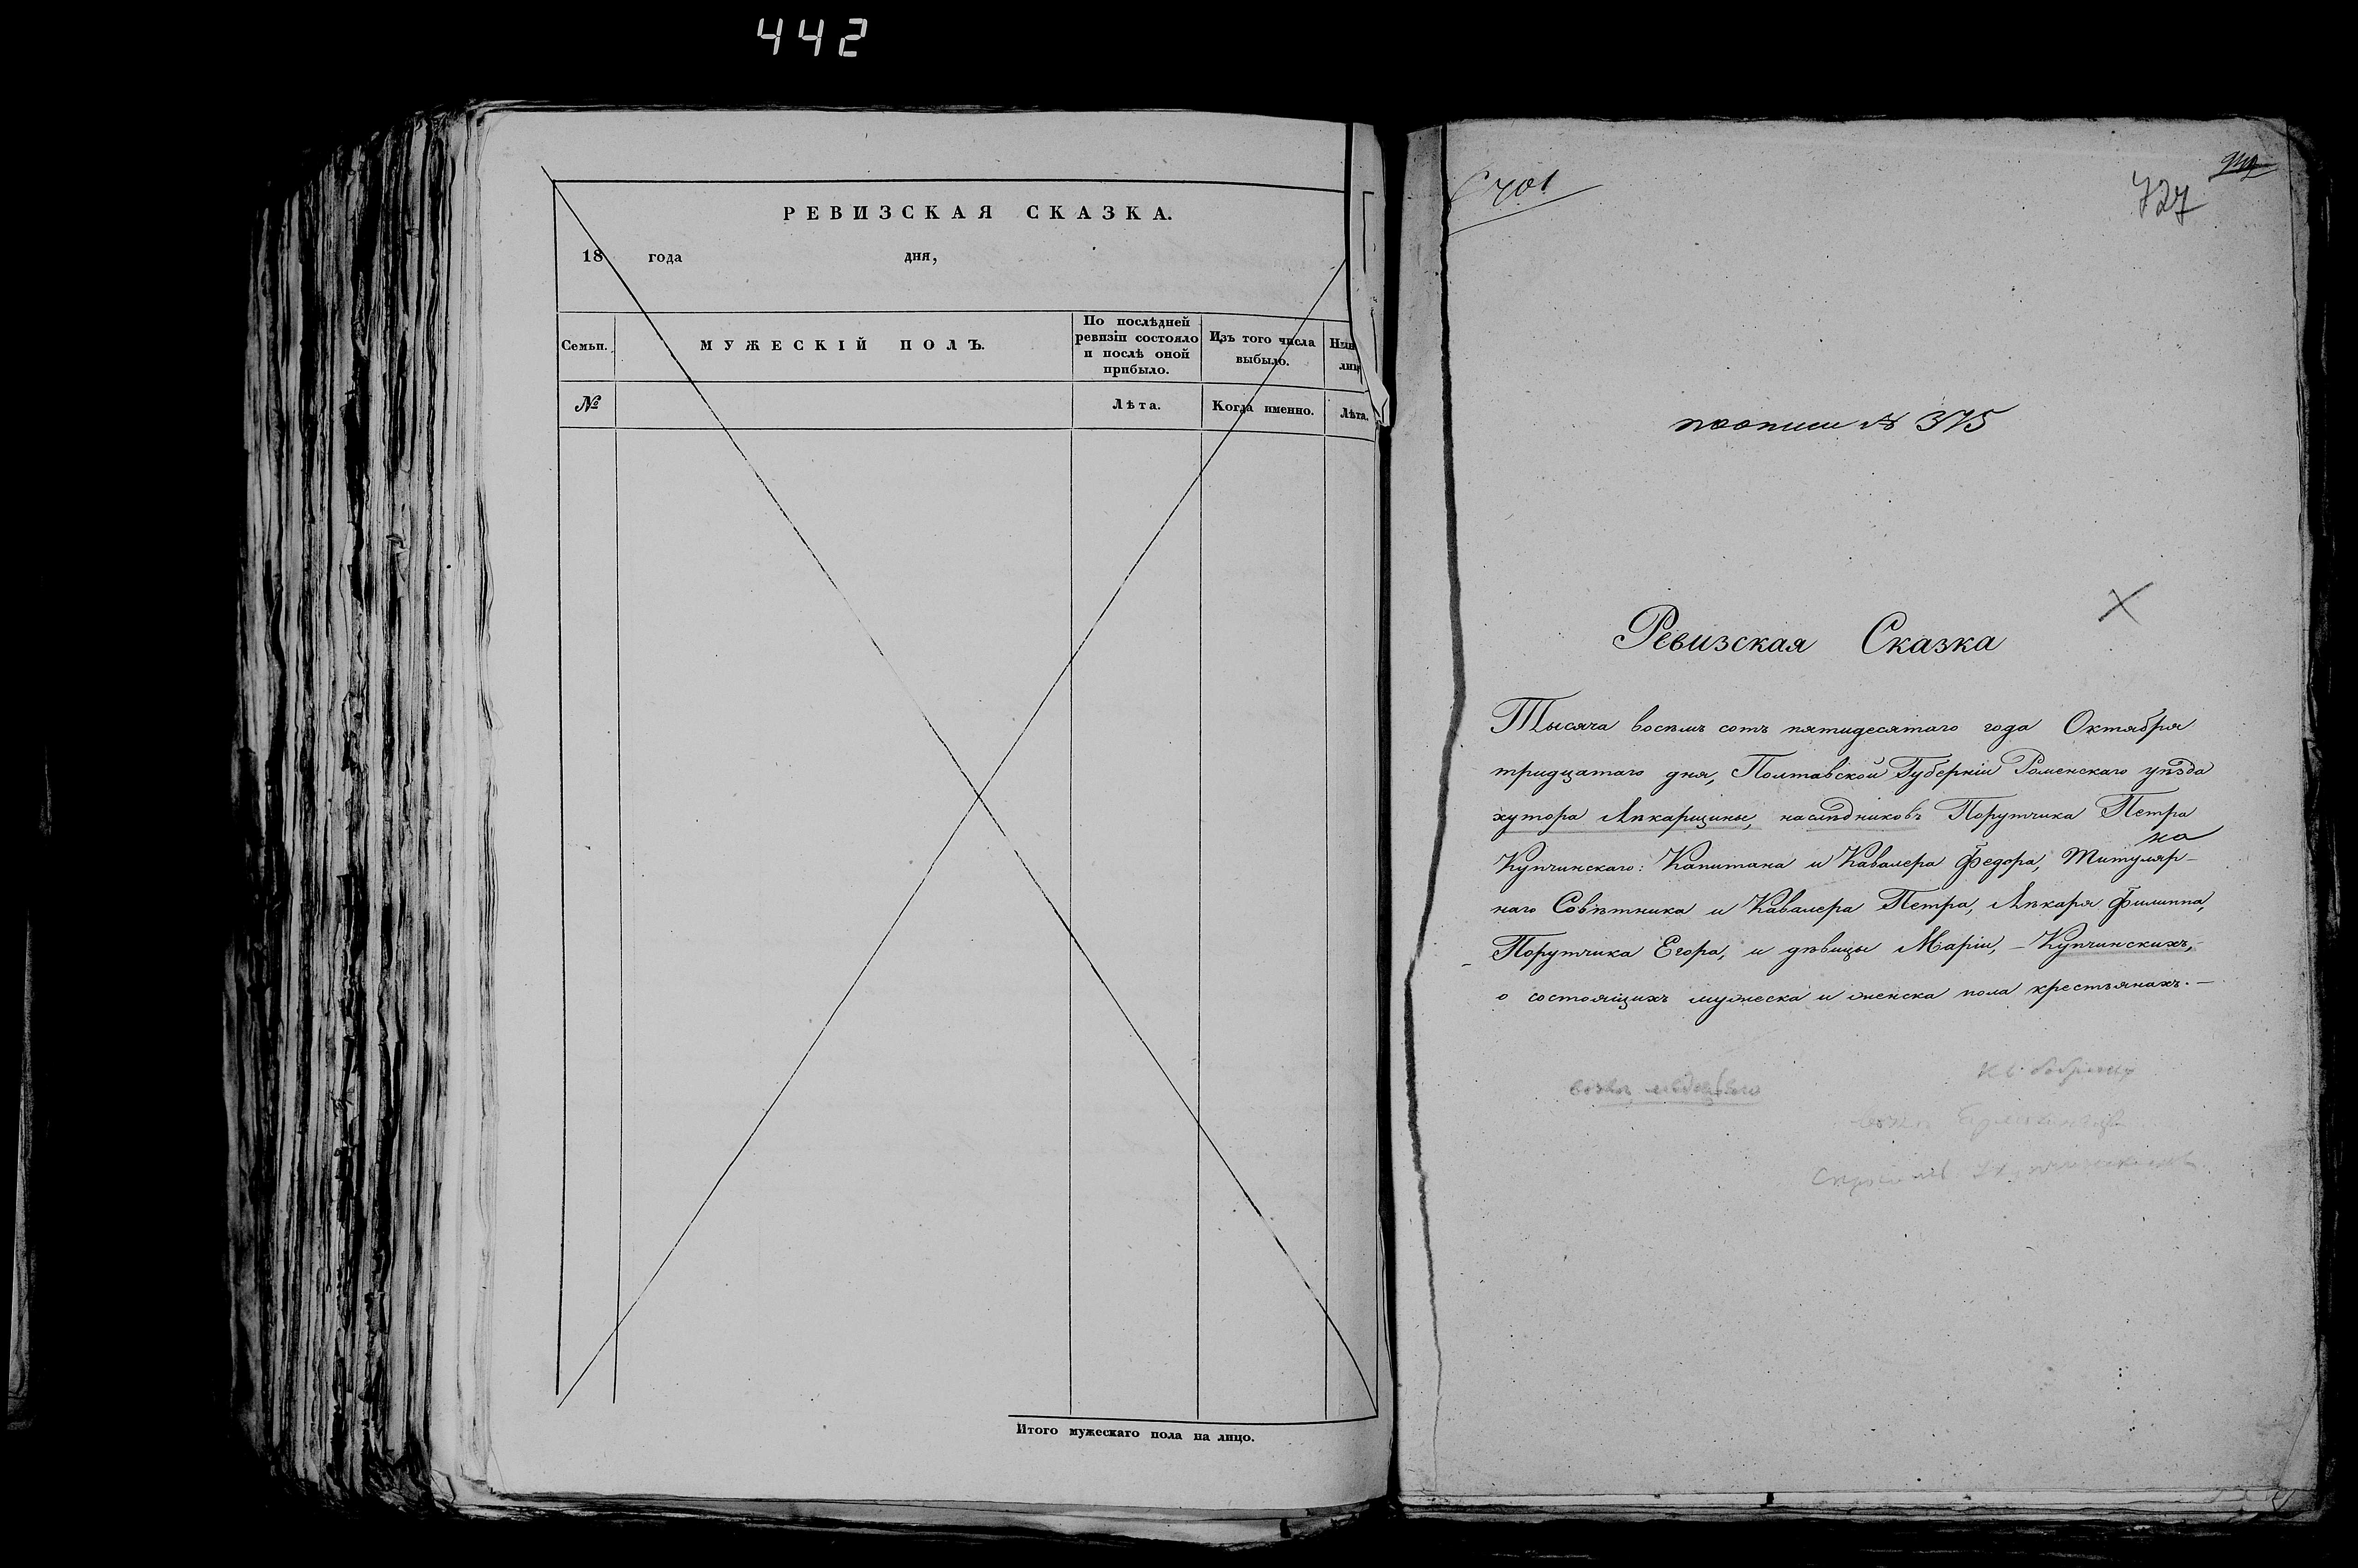 442
РЕВИЗСКАЯ СКАЗКА.
18 года дня,
Семьи.
МУЖЕСКІЙ ПОЛЪ.
По послѣдней
ревизіи состояло
и послѣ оной
прибыло.
Изъ того числа
выбыло.
№
Лѣта.
Когда именно.
Лѣта.
Итого мужескаго пола на лицо.
701
727
по описи № 375
Ревизская Сказка
Тысяча восемь сотъ пятидесятаго года Октября
тридцатаго дня, Полтавской Губерніи Роменскаго уѣзда
хутора Лѣкарщины, наслѣдниковъ Порутчика Петра
Купчинскаго: Капитана и Кавалера Федора, Титуляр-
наго Совѣтника и Кавалера Петра, Лѣкаря Филиппа,
Порутчика Егора, и дѣвицы Маріи, - Купчинскихъ,
о состоящихъ мужеска и женска пола крестьянахъ. -